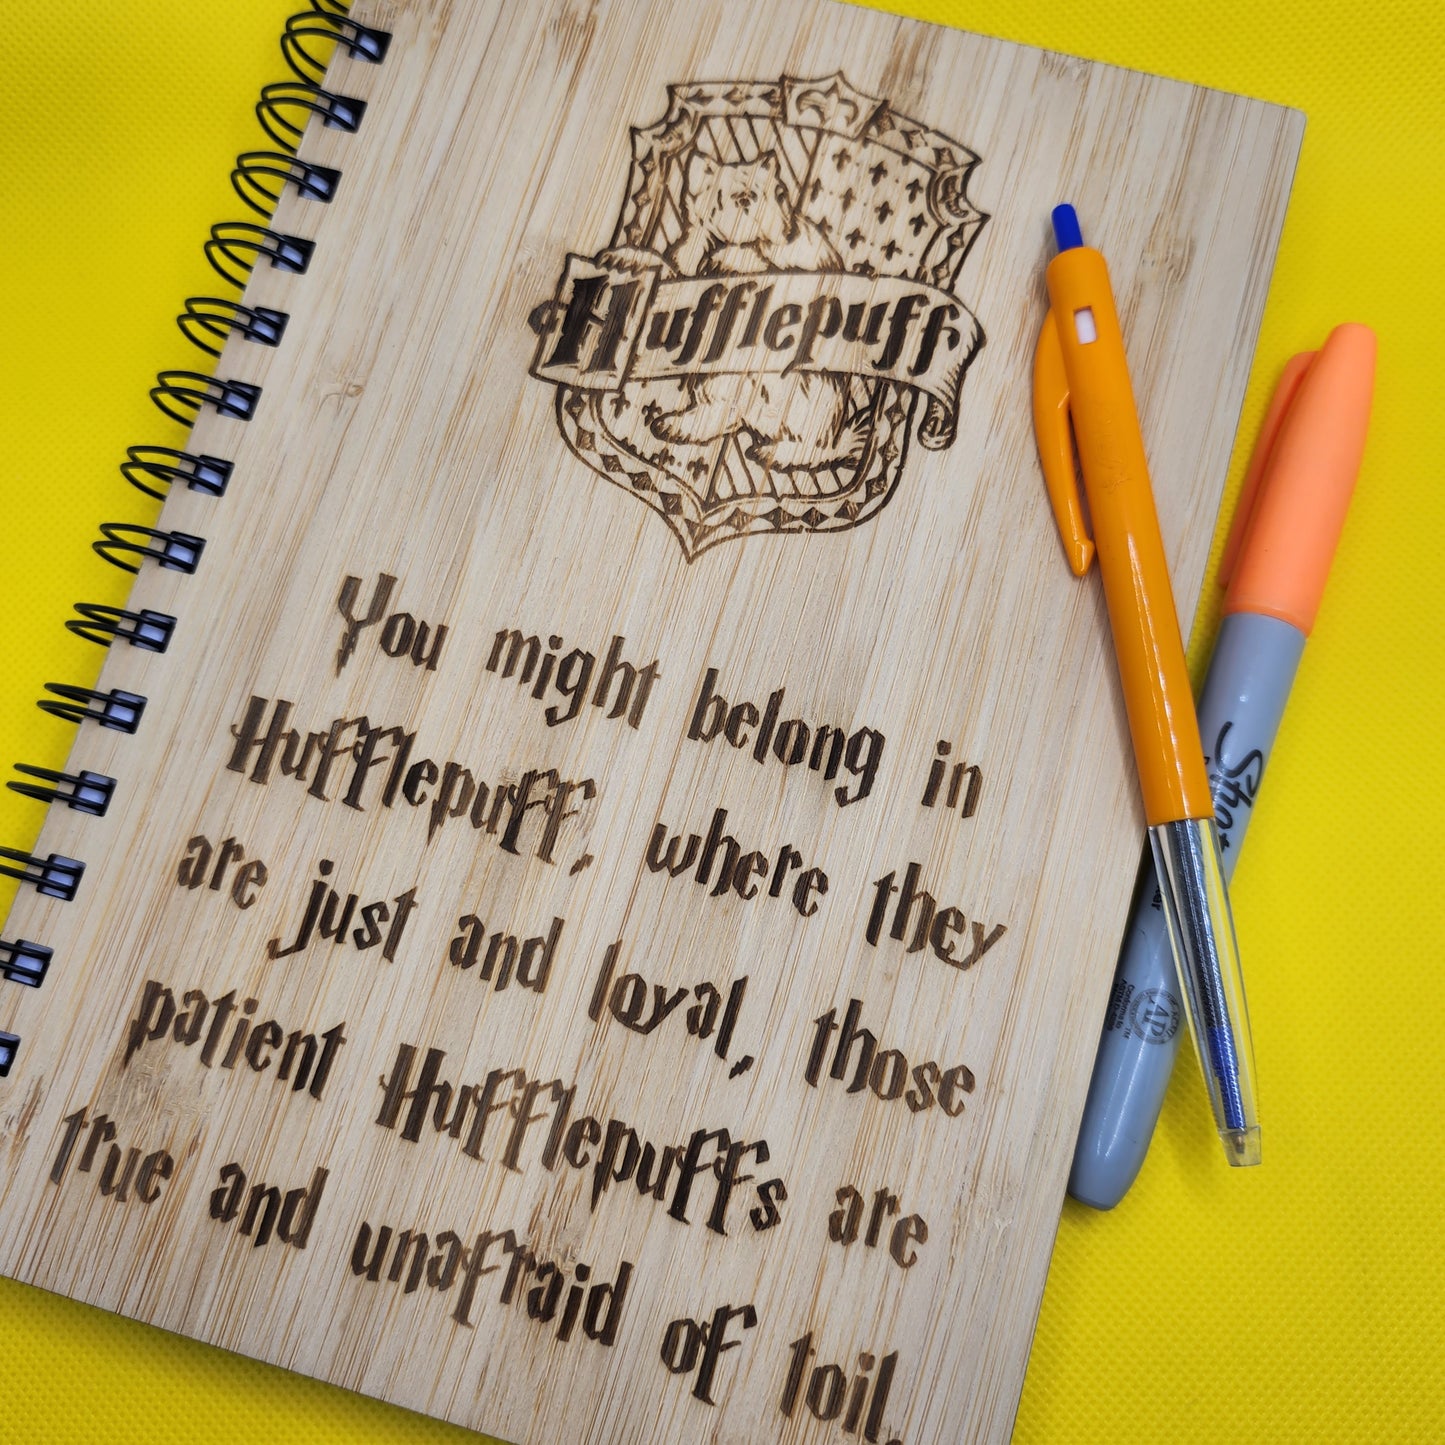 Hufflepuff
You might belong in
Hufflepuff, where they
are just and loyal, those
patient Hufflepuffs are
true and unafraid of toil.
AP